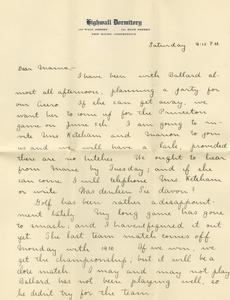 Highwall Dormitory
Saturday 4:15 P.M.
Dear Mama:-
I have been with Ballard al-
most all afternoon, planning a party for
our Chero. If she can get away, we
want her to come up for the Princeton
game on June 5th. I am going to
invite Mrs Ketcham and Marion to join
us and we will have a lark, provided
there are no hitches. We ought to hear
from Marie by Tuesday; and if she
can come, I will telephone Mrs. Ketcham
or write. Was denken Sie davon?
Golf has been rather a disappoint-
ment lately. My long game has gone
to smash; and I haven't figured it out
yet. The last team match comes off
Monday with 1910. If we win, we
get the championship; but it will be a
close match. I may and may not play.
Ballard has not been playing well, so
he didn't try for the team.